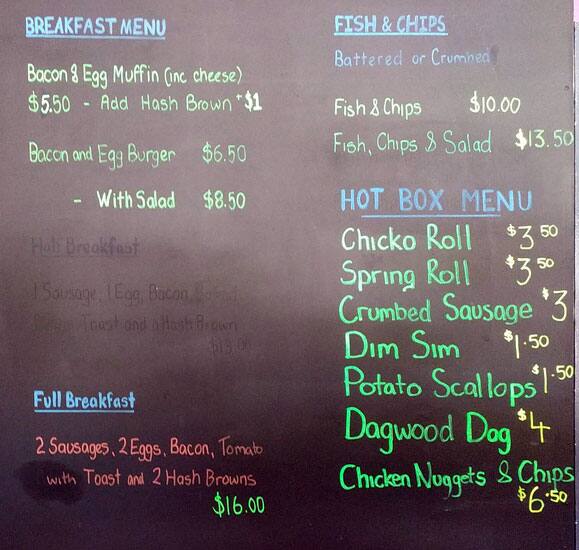 BREAKFAST MENU
Bacon & Egg Muffin (inc cheese)
$5.50 - Add Hash Brown + $1
Bacon and Egg Burger $6.50
- With Salad $8.50
Half Breakfast
1 Sausage, 1 Egg, Bacon,
Toast and a Hash Brown
Full Breakfast
2 Sausages, 2 Eggs, Bacon, Tomato
with Toast and 2 Hash Browns
$16.00
FISH & CHIPS
Battered or Crumbed
Fish & Chips $10.00
Fish, Chips & Salad $13.50
HOT BOX MENU
Chicko Roll $3 50
Spring Roll $3 50
Crumbed Sausage $3
Dim Sim $1.50
Potato Scallops $1.50
Dagwood Dog $4
Chicken Nuggets & Chips
$6.50